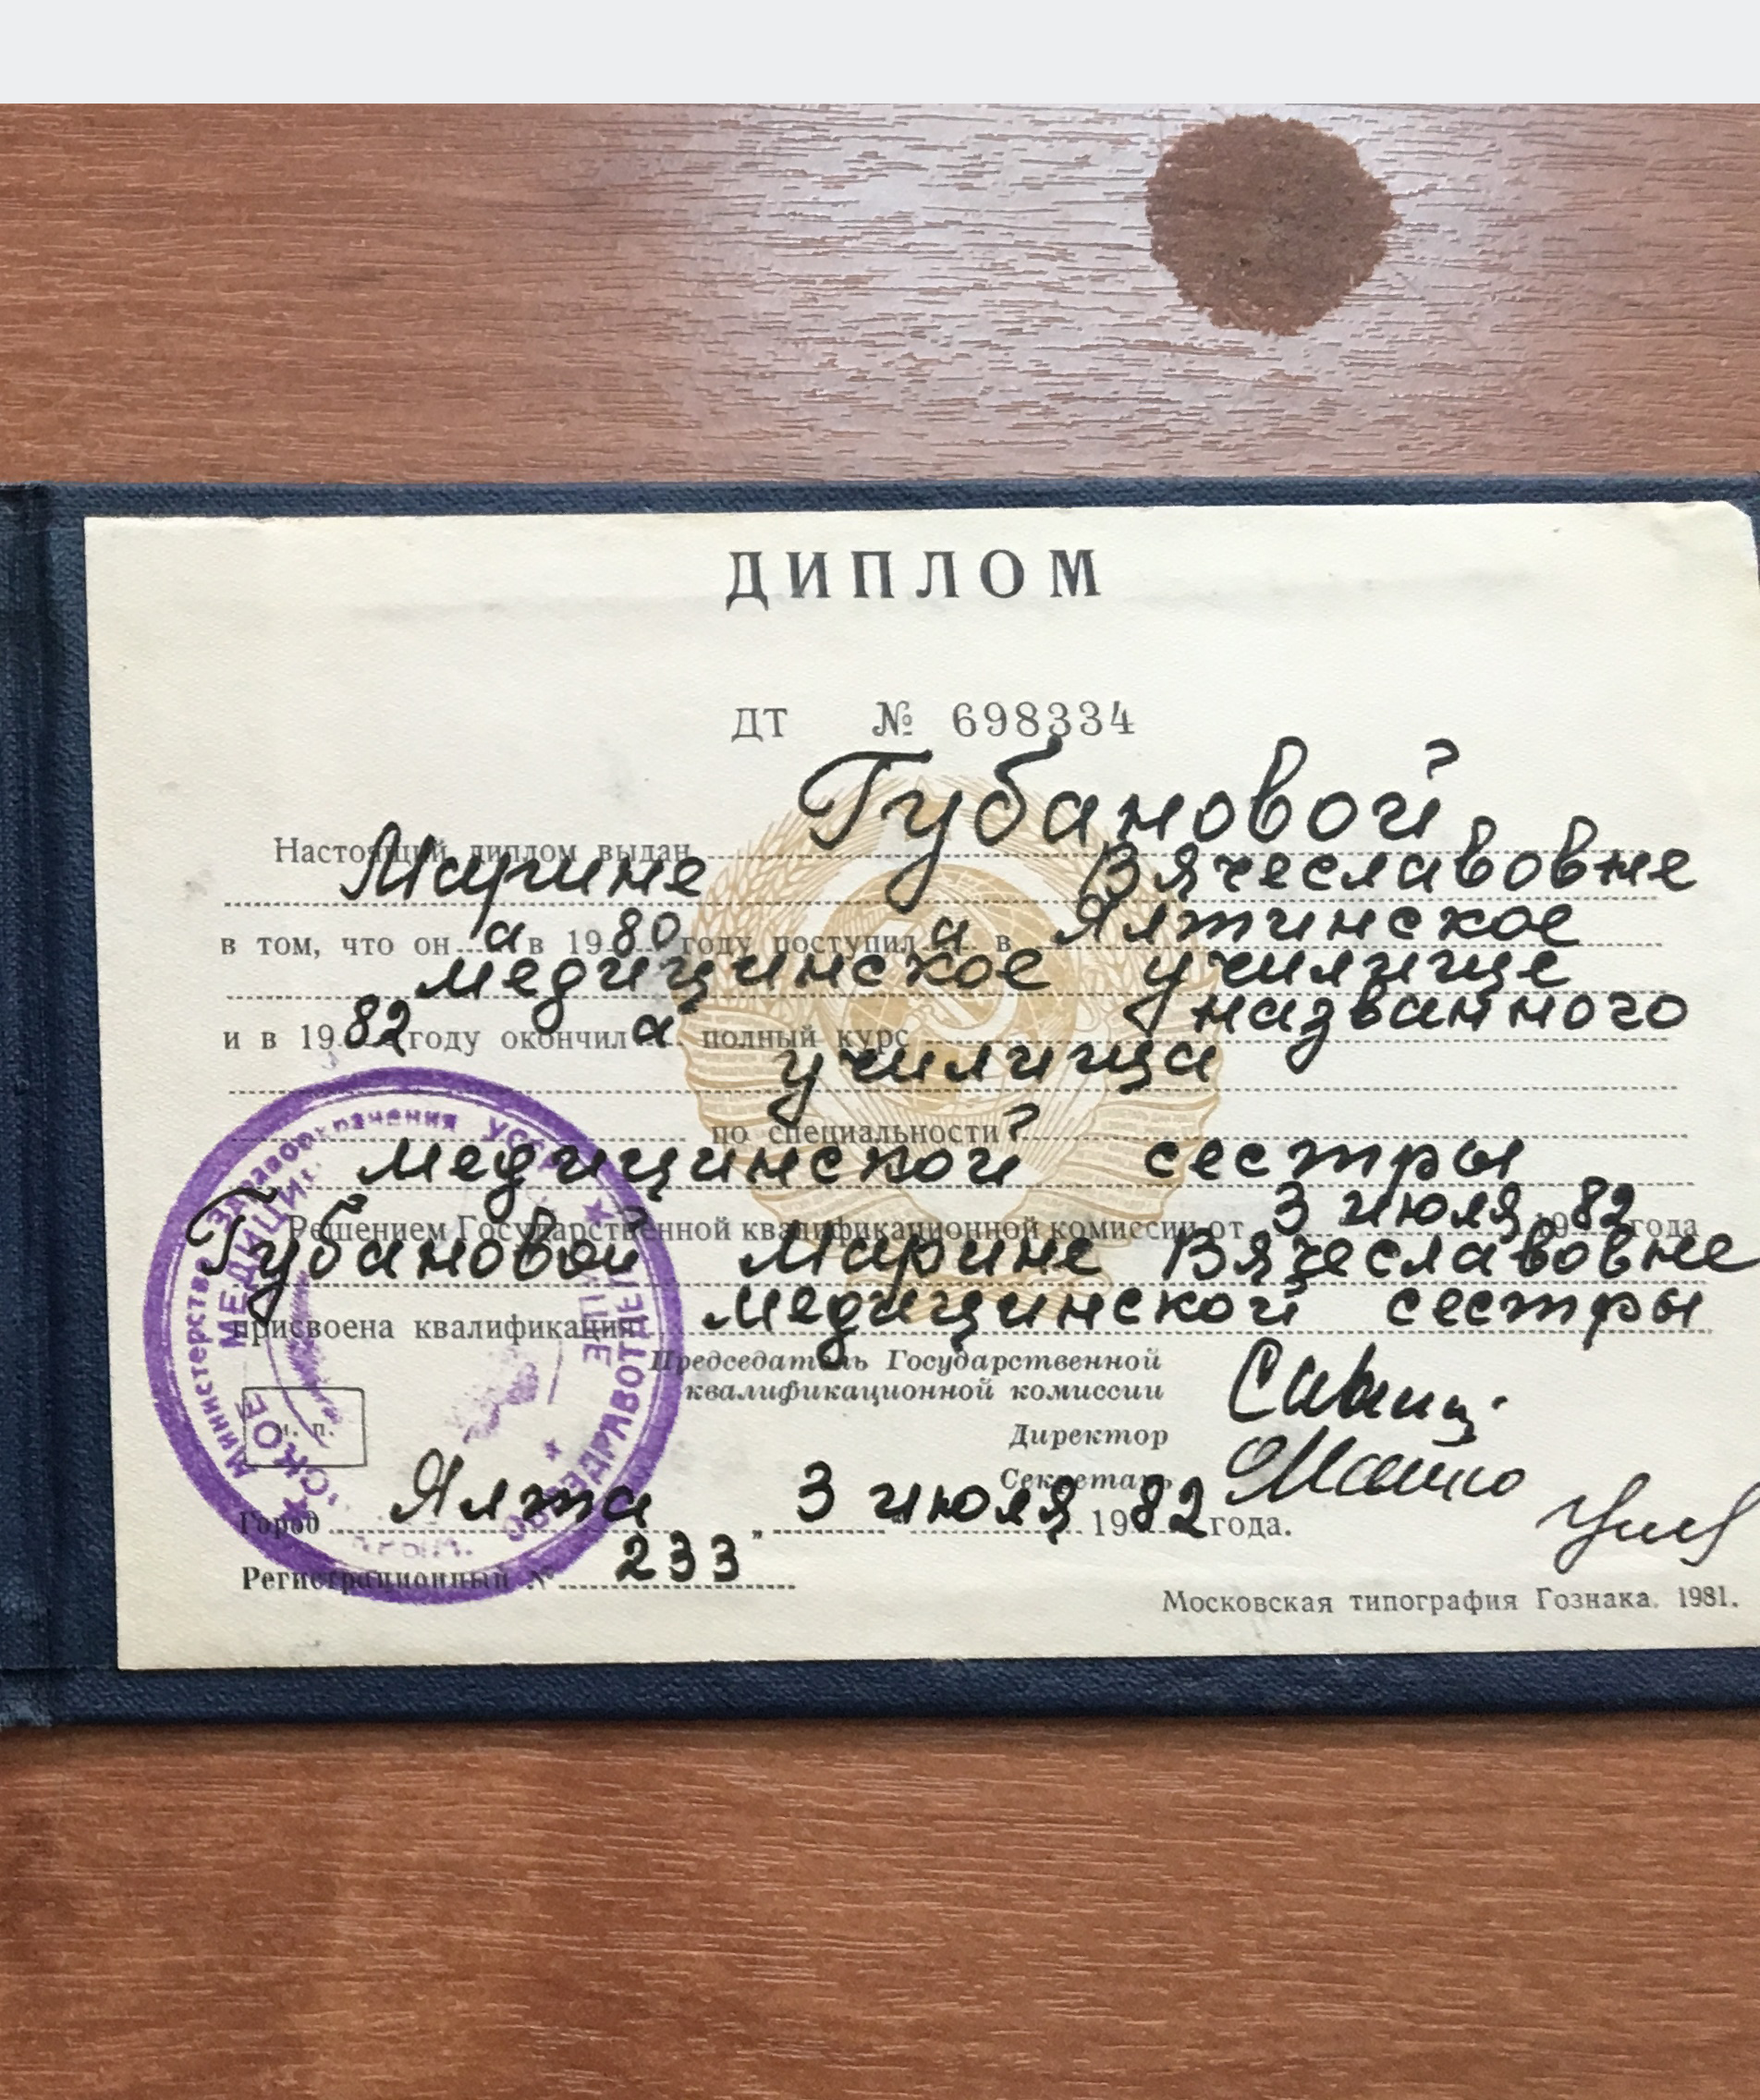 ДИПЛОМ
ДТ № 698334
Настоящий диплом выдан Губановой
Марине Вячеславовне
в том, что он а в 1980 году поступил а в Ялтинское
медицинское училище
и в 1982 году окончил а полный курс названного
училища
по специальности
медицинской сестры
Решением Государственной квалификационной комиссии от 3 июля 1982 года
Губановой Марине Вячеславовне
присвоена квалификация медицинской сестры
Председатель Государственной
квалификационной комиссии
Директор
Секретарь
М. П.
Город Ялта „ 3 " июля 1982 года.
Регистрационный № 233
Московская типография Гознака. 1981.
Министерство здравоохранения УССР